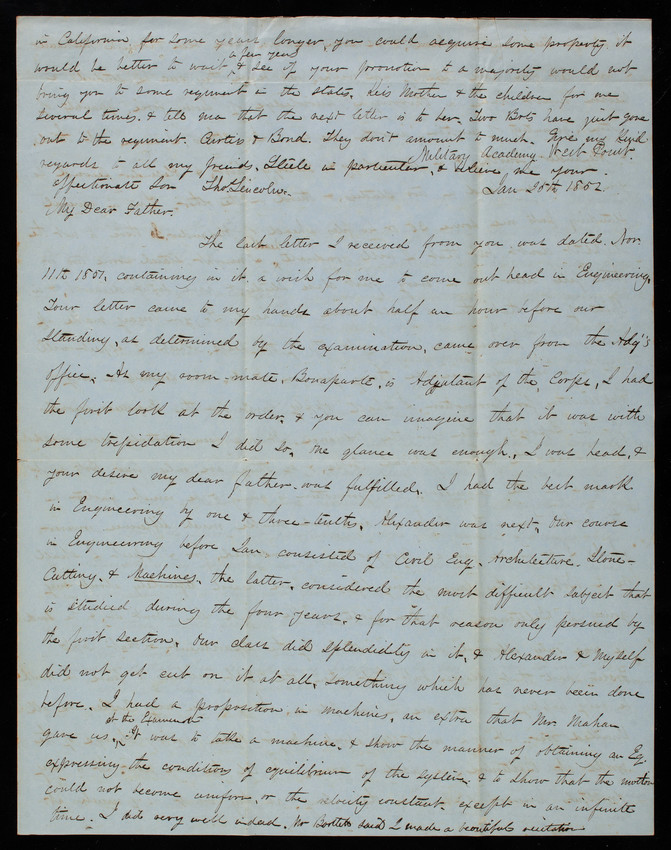 in California for some years longer you could acquire some property. it
would be better to wait a few years & see if your promotion to a majority would not
bring you to some regiment in the states. Kiss Mother & the children for me
several times. & tell ma that the next letter is to her. Two Bots have just gone
out to the regiment. Curtis & Bond. They don't amount to much. Give my kind
regards to all my friends, Steele in particular, & believe me your
Affectionate Son Tho. Lincoln.
Military Academy West Point.
Jan 25th 1852
My Dear Father.
The last letter I received from you was dated. Nov.
11th 1851, containing in it a wish for me to come out head in Engineering.
Your letter came to my hands about half an hour before our
standing, as determined by the examination, came over from the Adj's
office. As my room-mate, Bonaparte, is Adjutant of the Corps, I had
the first look at the order. & you can imagine that it was with
some trepidation I did so, one glance was enough. I was head, &
your desire my dear father was fulfilled. I had the best mark
in Engineering by one & three-tenths, Alexander was next. Our course
in Engineering before Jan consisted of Civil Eng. Architecture. Stone-
Cutting, & Machines. the latter, considered the most difficult subject that
is studied during the four years, & for that reason only perused by
the first section. Our class did splendidly in it, & Alexander & Myself
did not get cut on it at all, something which has never been done
before. I had a proposition in machines, an extra that Mr. Mahan
gave us, at the Examinat. It was to take a machine. & show the manner of obtaining an Eq.
expressing the conditions of equilibrium of the system & to show that the motion
could not become uniform, or the velocity constant except in an infinite
time. I did very well indeed. Mr Bartlett said I made a beautiful recitation